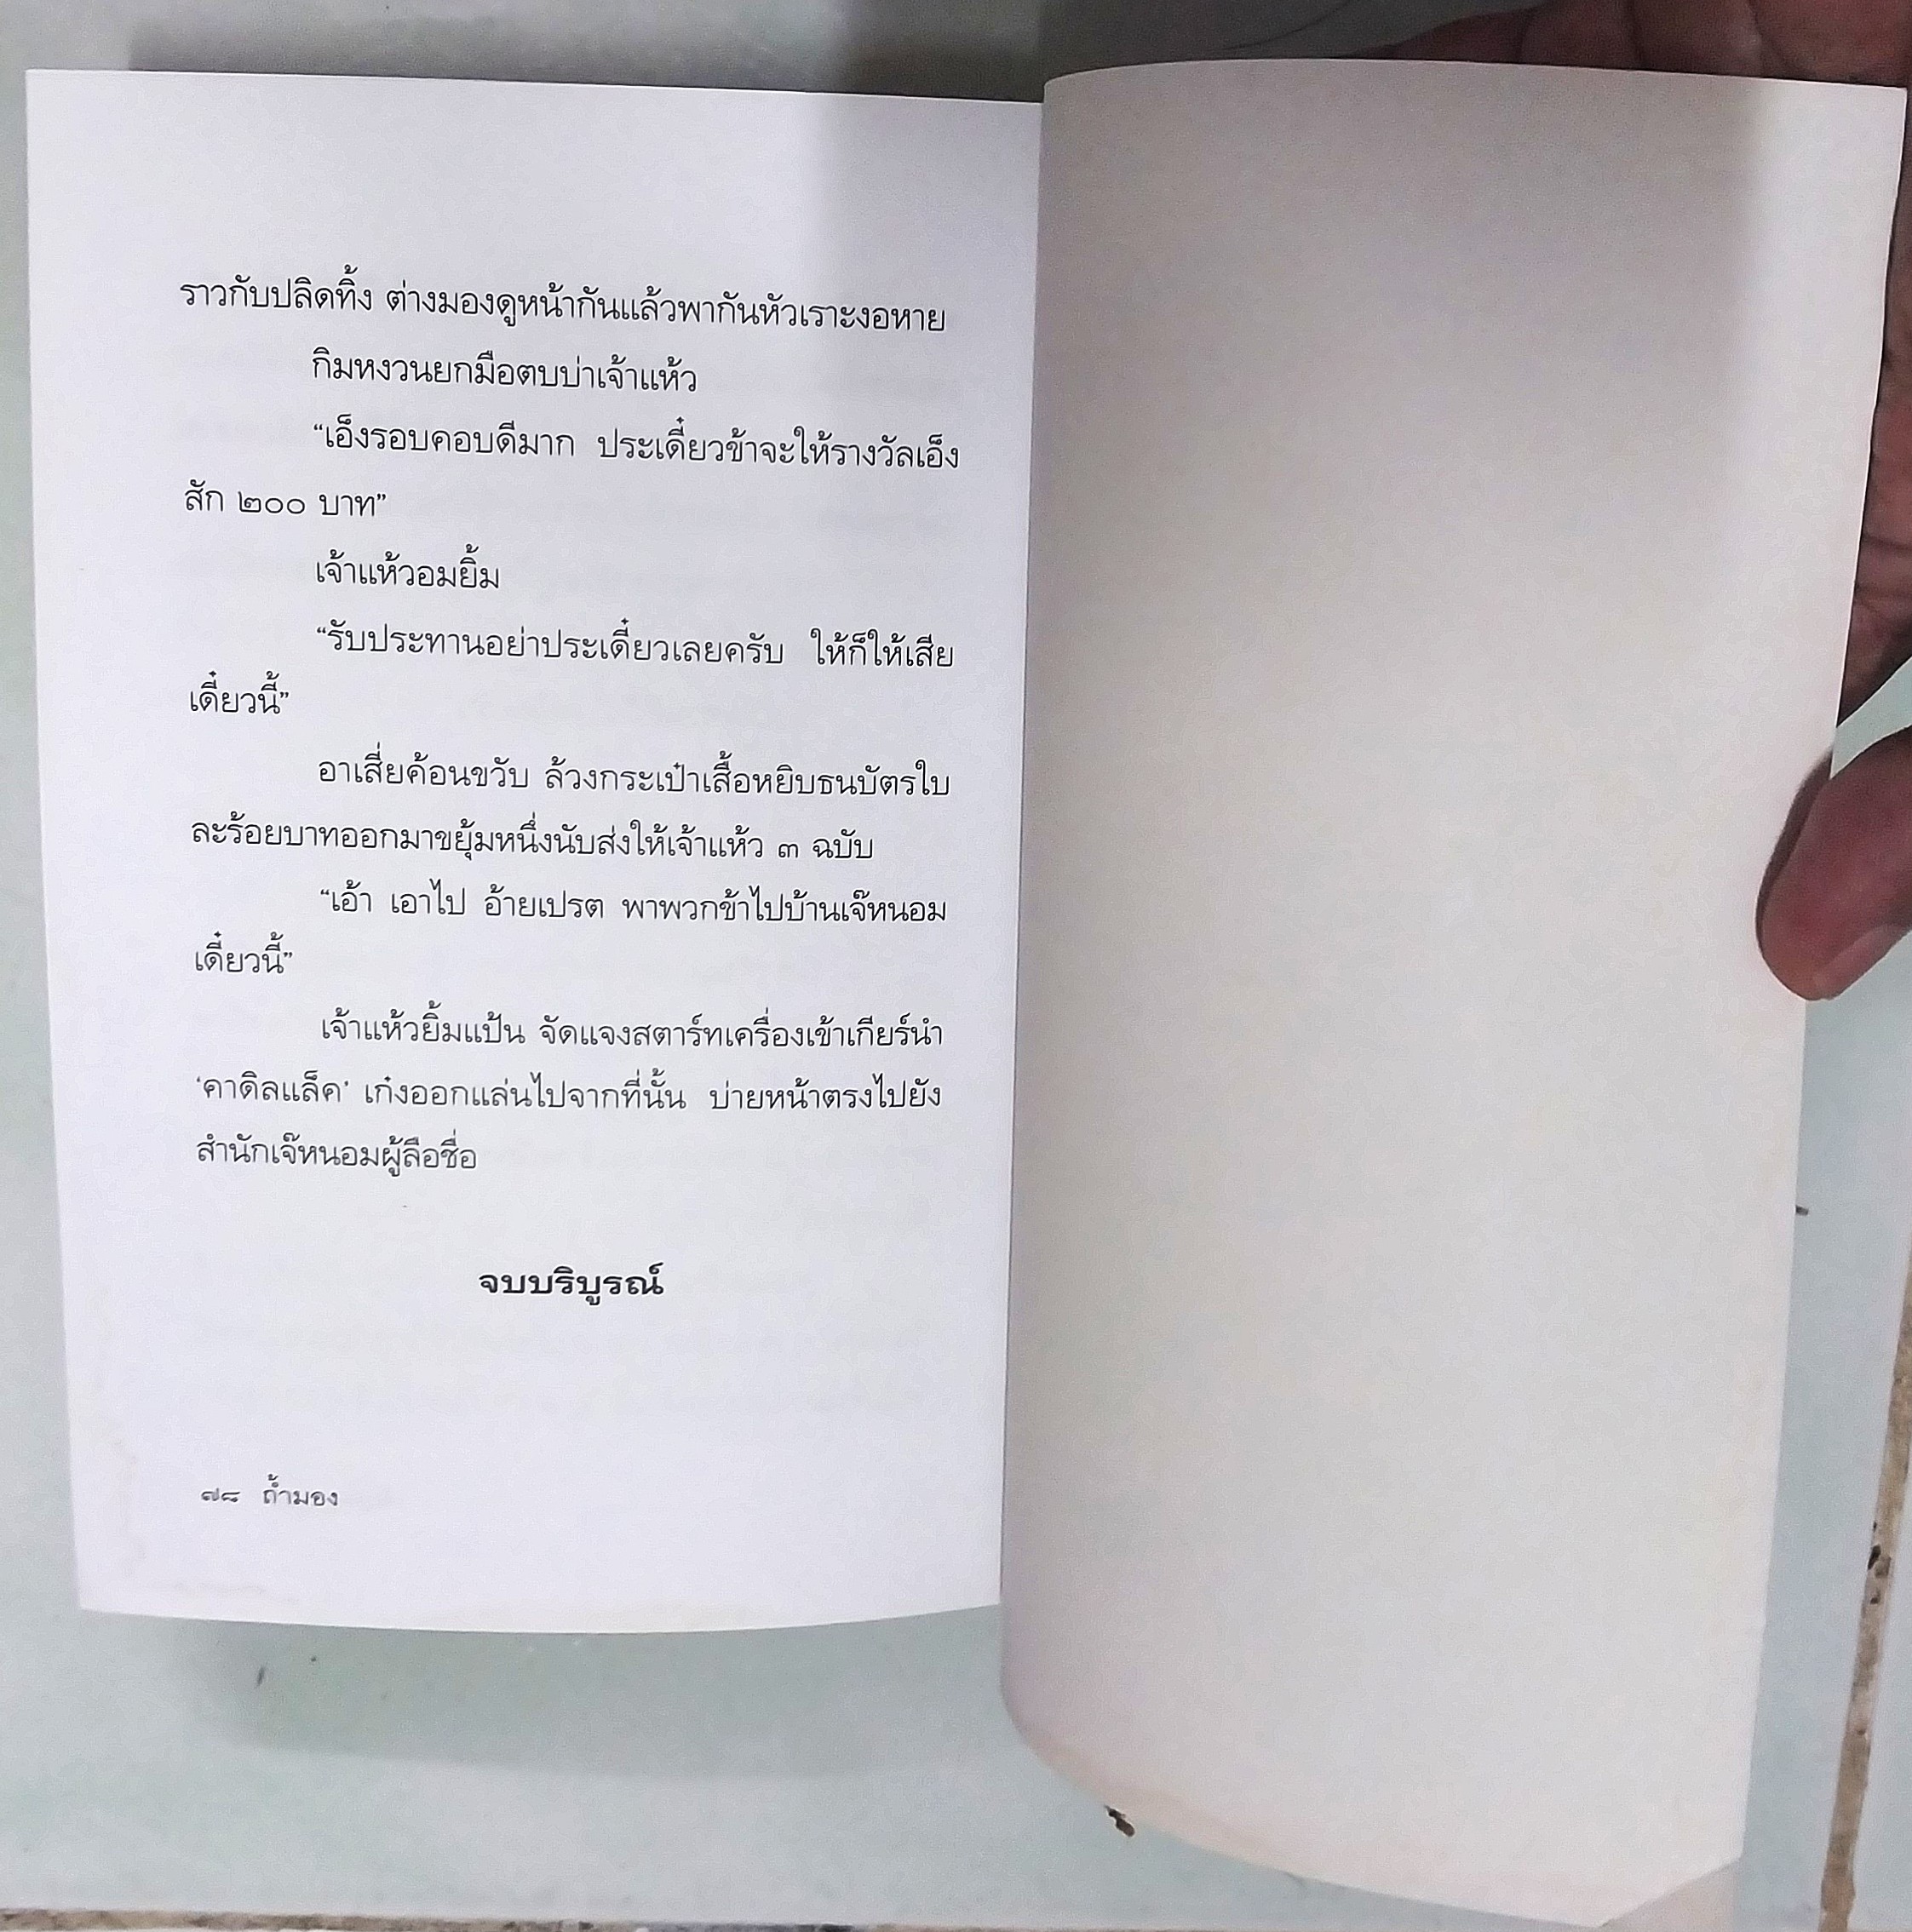 ราวกับปลิดทิ้ง ต่างมองดูหน้ากันแล้วพากันหัวเราะงอหาย
กิมหงวนยกมือตบบ่าเจ้าแห้ว
“เอ็งรอบคอบดีมาก ประเดี๋ยวข้าจะให้รางวัลเอ็ง
สัก ๒๐๐ บาท”
เจ้าแห้วอมยิ้ม
“รับประทานอย่าประเดี๋ยวเลยครับ ให้ก็ให้เสีย
เดี๋ยวนี้”
อาเสี่ยค้อนขวับ ล้วงกระเป๋าเสื้อหยิบธนบัตรใบ
ละร้อยบาทออกมาขยุ้มหนึ่งนับส่งให้เจ้าแห้ว ๓ ฉบับ
“เอ้า เอาไป อ้ายเปรต พาพวกข้าไปบ้านเจ๊หนอม
เดี๋ยวนี้”
เจ้าแห้วยิ้มแป้น จัดแจงสตาร์ทเครื่องเข้าเกียร์นำ
‘คาดิลแล็ค’ เก๋งออกแล่นไปจากที่นั้น บ่ายหน้าตรงไปยัง
สำนักเจ๊หนอมผู้ลือชื่อ
จบบริบูรณ์
๗๘ ถ้ำมอง